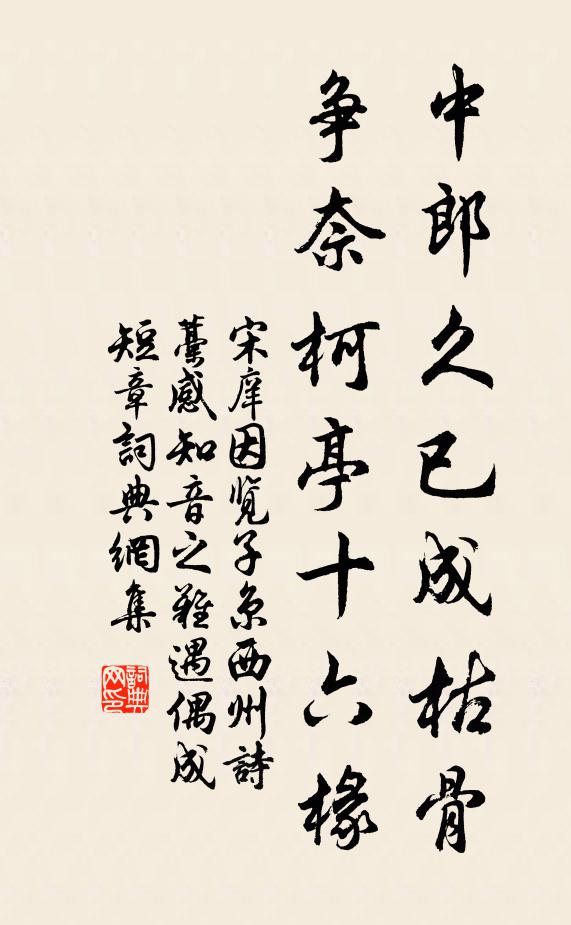 中郎久已成枯骨
争奈柯亭十六椽
宋庠因览子京西州詩
藳感知音之難遇偶成
短章詞典網集
詞典
网印